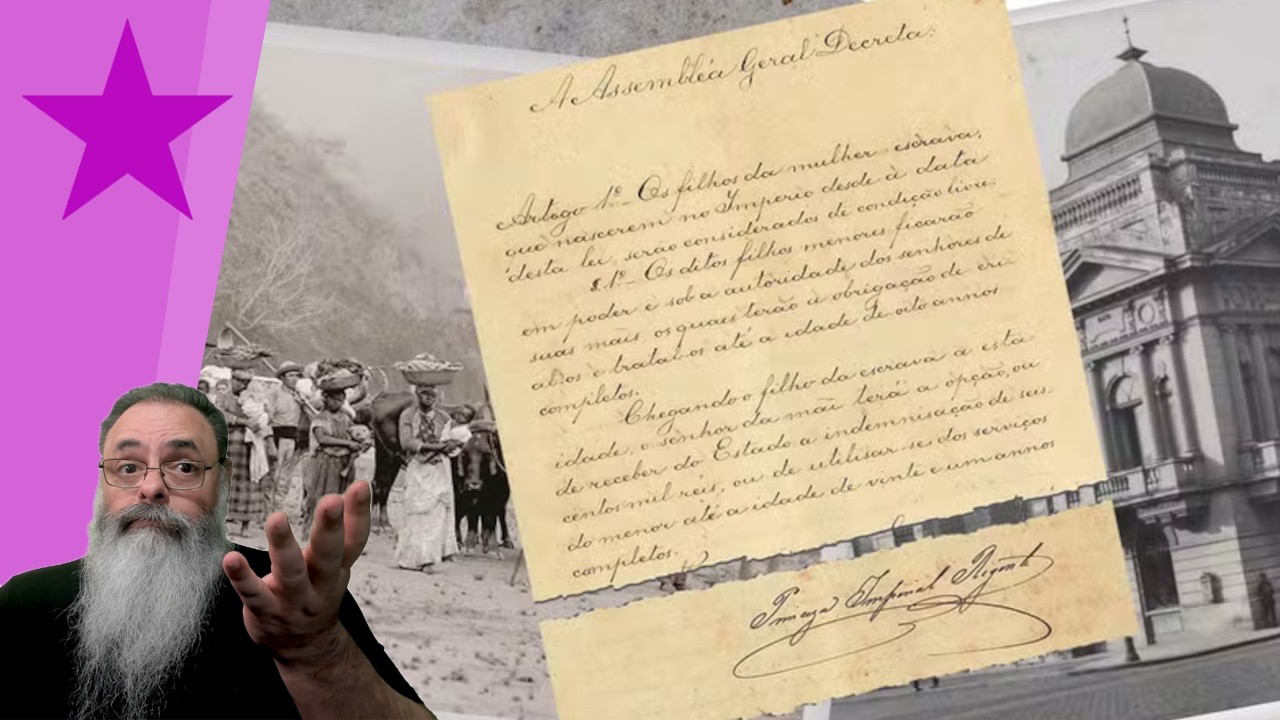 A Assembléa Geral Decreta:
Artigo 1º _ Os filhos da mulher escrava,
que nascerem no Imperio desde a data
desta lei, serão considerados de condição livre.
§ 1º _ Os ditos filhos menores ficarão
em poder e sob a autoridade dos senhores de
suas mãis, os quaes terão a obrigação de cri-
al-os e tratal-os até a idade de oito annos
completos.
Chegando o filho da escrava a esta
idade, o senhor da mãi terá a opção, ou
de receber do Estado a indemnisação de seis-
centos mil réis, ou de utilisar-se dos serviços
do menor até a idade de vinte e um annos
completos.
Princeza Imperial Regente